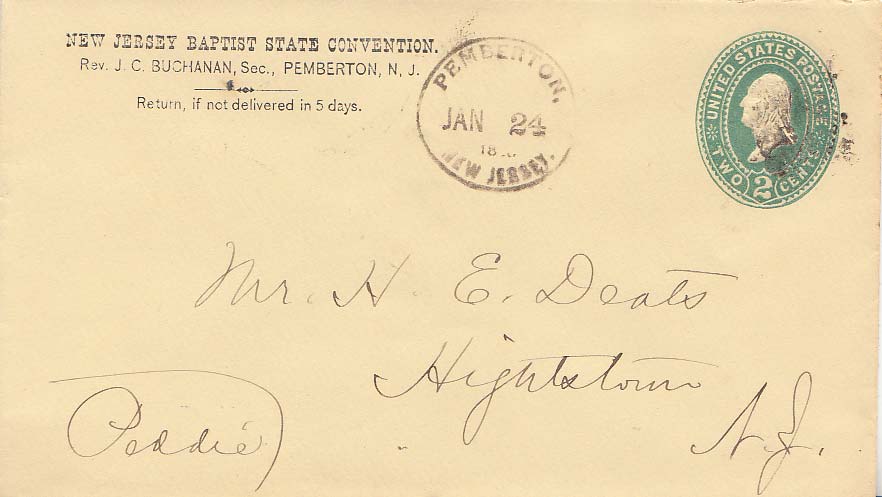 NEW JERSEY BAPTIST STATE CONVENTION.
Rev. J. C. BUCHANAN, Sec., PEMBERTON, N. J.
Return, if not delivered in 5 days.
PEMBERTON,
JAN 24
18
NEW JERSEY.
UNITED STATES POSTAGE
TWO 2 CENTS
Mr. H. E. Deats
Hightstown
Peddie
N.J.